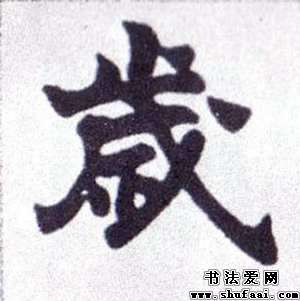 歲
书法爱网
www.shufaai.com